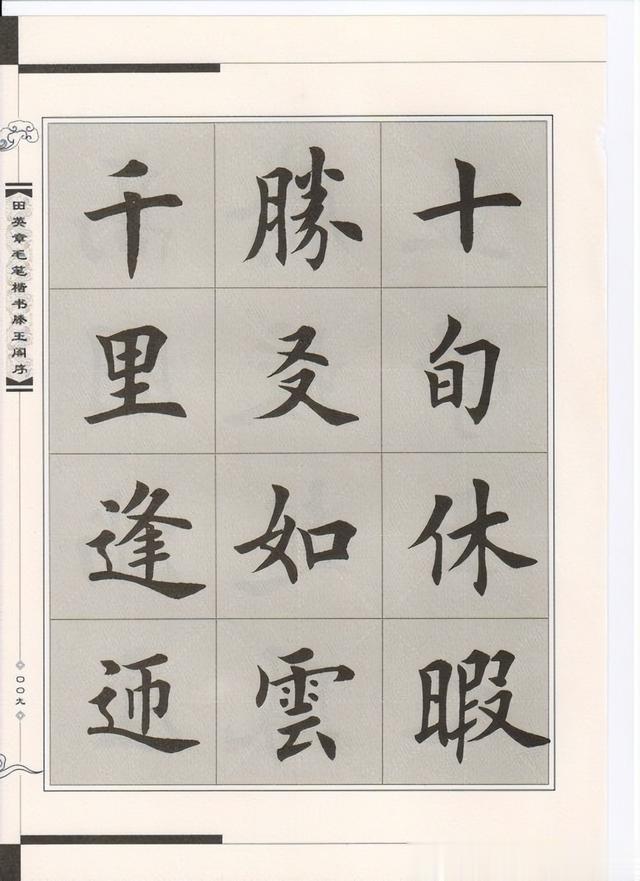 十旬休暇
勝友如雲
千里逢迎
【田英章毛笔楷书滕王阁序】
〇〇九